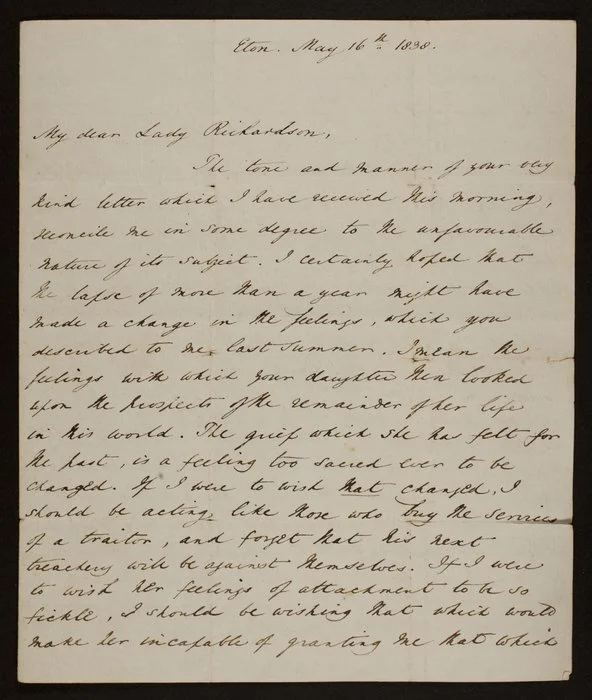 Eton. May 16th 1838.
My dear Lady Richardson,
The tone and manner of your very
kind letter which I have received this morning,
reconcile me in some degree to the unfavourable
nature of its subject. I certainly hoped that
the lapse of more than a year might have
made a change in the feelings, which you
described to me last summer. I mean the
feelings with which your daughter then looked
upon the prospects of the remainder of her life
in this world. The grief which she has felt for
the past, is a feeling too sacred ever to be
changed. If I were to wish that changed, I
should be acting like those who buy the services
of a traitor, and forget that his next
treachery will be against themselves. If I were
to wish her feelings of attachment to be so
fickle, I should be wishing that which would
make her incapable of granting me that which